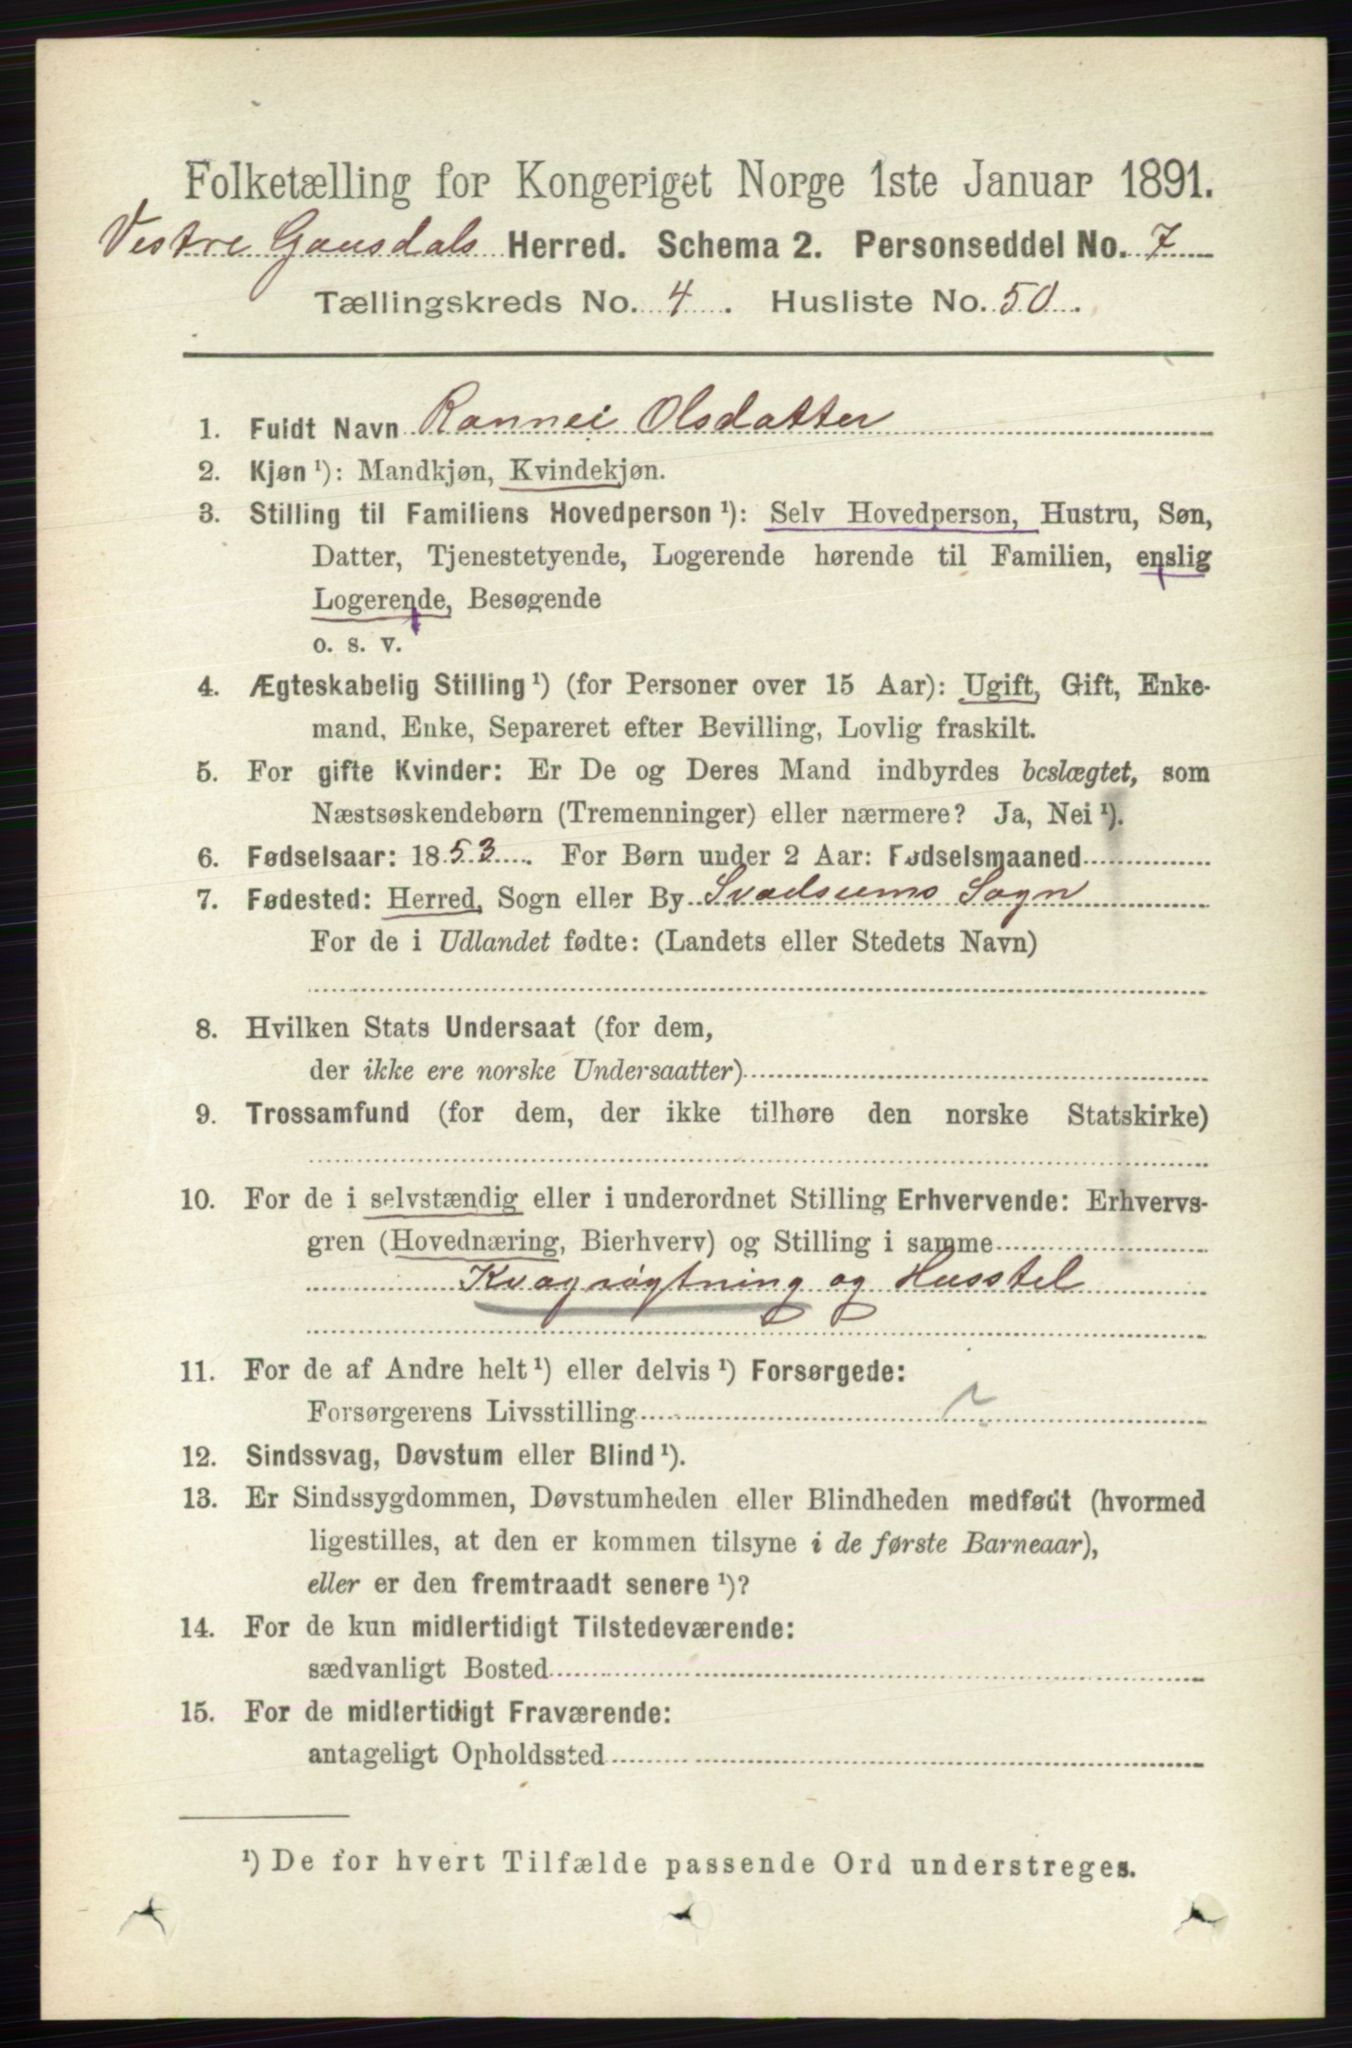 Folketælling for Kongeriget Norge 1ste Januar 1891.
Vestre Gausdals Herred. Schema 2. Personseddel No. 7
Tællingskreds No. 4. Husliste No. 50.
1. Fuldt Navn Rannei Olsdatter
2. Kjøn ¹): Mandkjøn, Kvindekjøn.
3. Stilling til Familiens Hovedperson ¹): Selv Hovedperson, Hustru, Søn,
Datter, Tjenestetyende, Logerende hørende til Familien, enslig
Logerende, Besøgende
o. s. v.
4. Ægteskabelig Stilling ¹) (for Personer over 15 Aar): Ugift, Gift, Enke-
mand, Enke, Separeret efter Bevilling, Lovlig fraskilt.
5. For gifte Kvinder: Er De og Deres Mand indbyrdes beslægtet, som
Næstsøskendebørn (Tremenninger) eller nærmere? Ja, Nei ¹).
6. Fødselsaar: 1853. For Børn under 2 Aar: Fødselsmaaned
7. Fødested: Herred, Sogn eller By Svadsums Sogn
For de i Udlandet fødte: (Landets eller Stedets Navn)
8. Hvilken Stats Undersaat (for dem,
der ikke ere norske Undersaatter)
9. Trossamfund (for dem, der ikke tilhøre den norske Statskirke)
10. For de i selvstændig eller i underordnet Stilling Erhvervende: Erhvervs-
gren (Hovednæring, Bierhverv) og Stilling i samme
Kvægrøgtning og Husstel
11. For de af Andre helt ¹) eller delvis ¹) Forsørgede:
Forsørgerens Livsstilling
12. Sindssvag, Døvstum eller Blind ¹).
13. Er Sindssygdommen, Døvstumheden eller Blindheden medfødt (hvormed
ligestilles, at den er kommen tilsyne i de første Barneaar),
eller er den fremtraadt senere ¹)?
14. For de kun midlertidigt Tilstedeværende:
sædvanligt Bosted
15. For de midlertidigt Fraværende:
antageligt Opholdssted
¹) De for hvert Tilfælde passende Ord understreges.